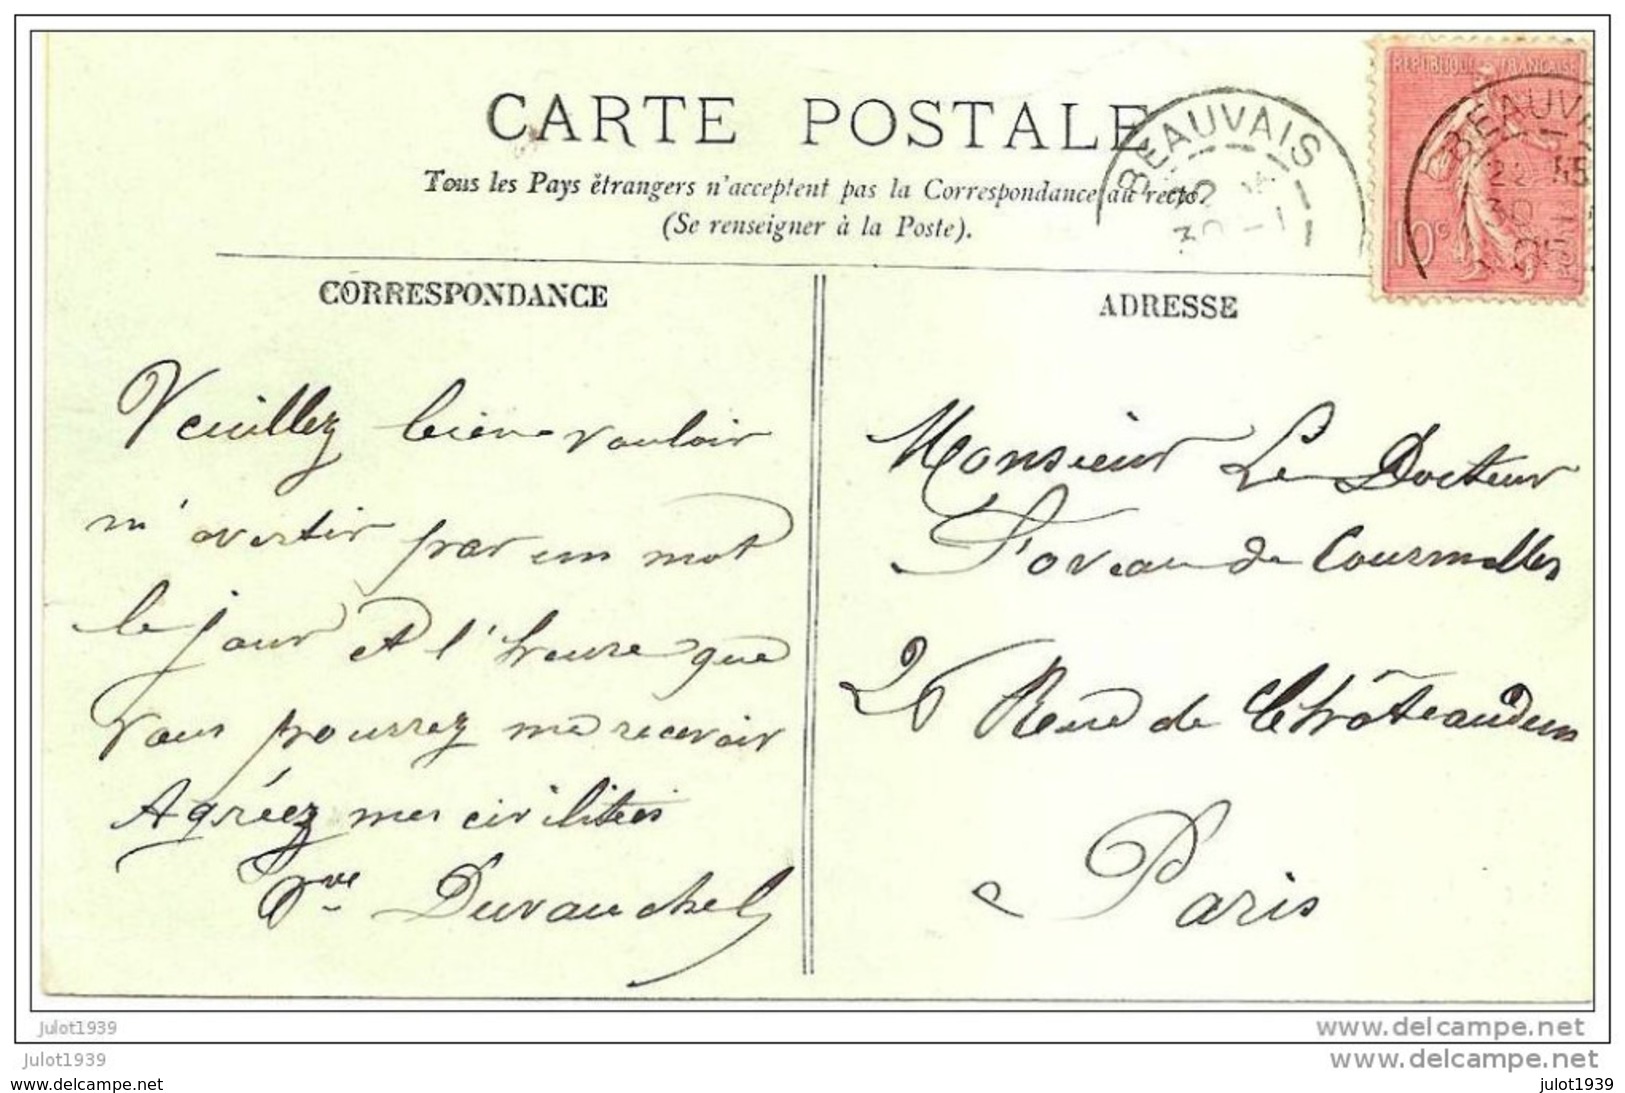 CARTE POSTALE
Tous les Pays étrangers n'acceptent pas la Correspondance au recto
(Se renseigner à la Poste).
BEAUVAIS
REPUBLIQUE FRANÇAISE
BEAUV
30
05
10c
CORRESPONDANCE
Veuillez bien vouloir
m'avertir par un mot
le jour et l'heure que
vous pourrez me recevoir
Agréez mes civilités
Vve Duvauchel
ADRESSE
Monsieur Le Docteur
Foveau de Courmelles
26 Rue de Châteaudun
Paris
Julot1939
www.delcampe.net
Julot1939
www.delcampe.net
www.delcampe.net
julot1939